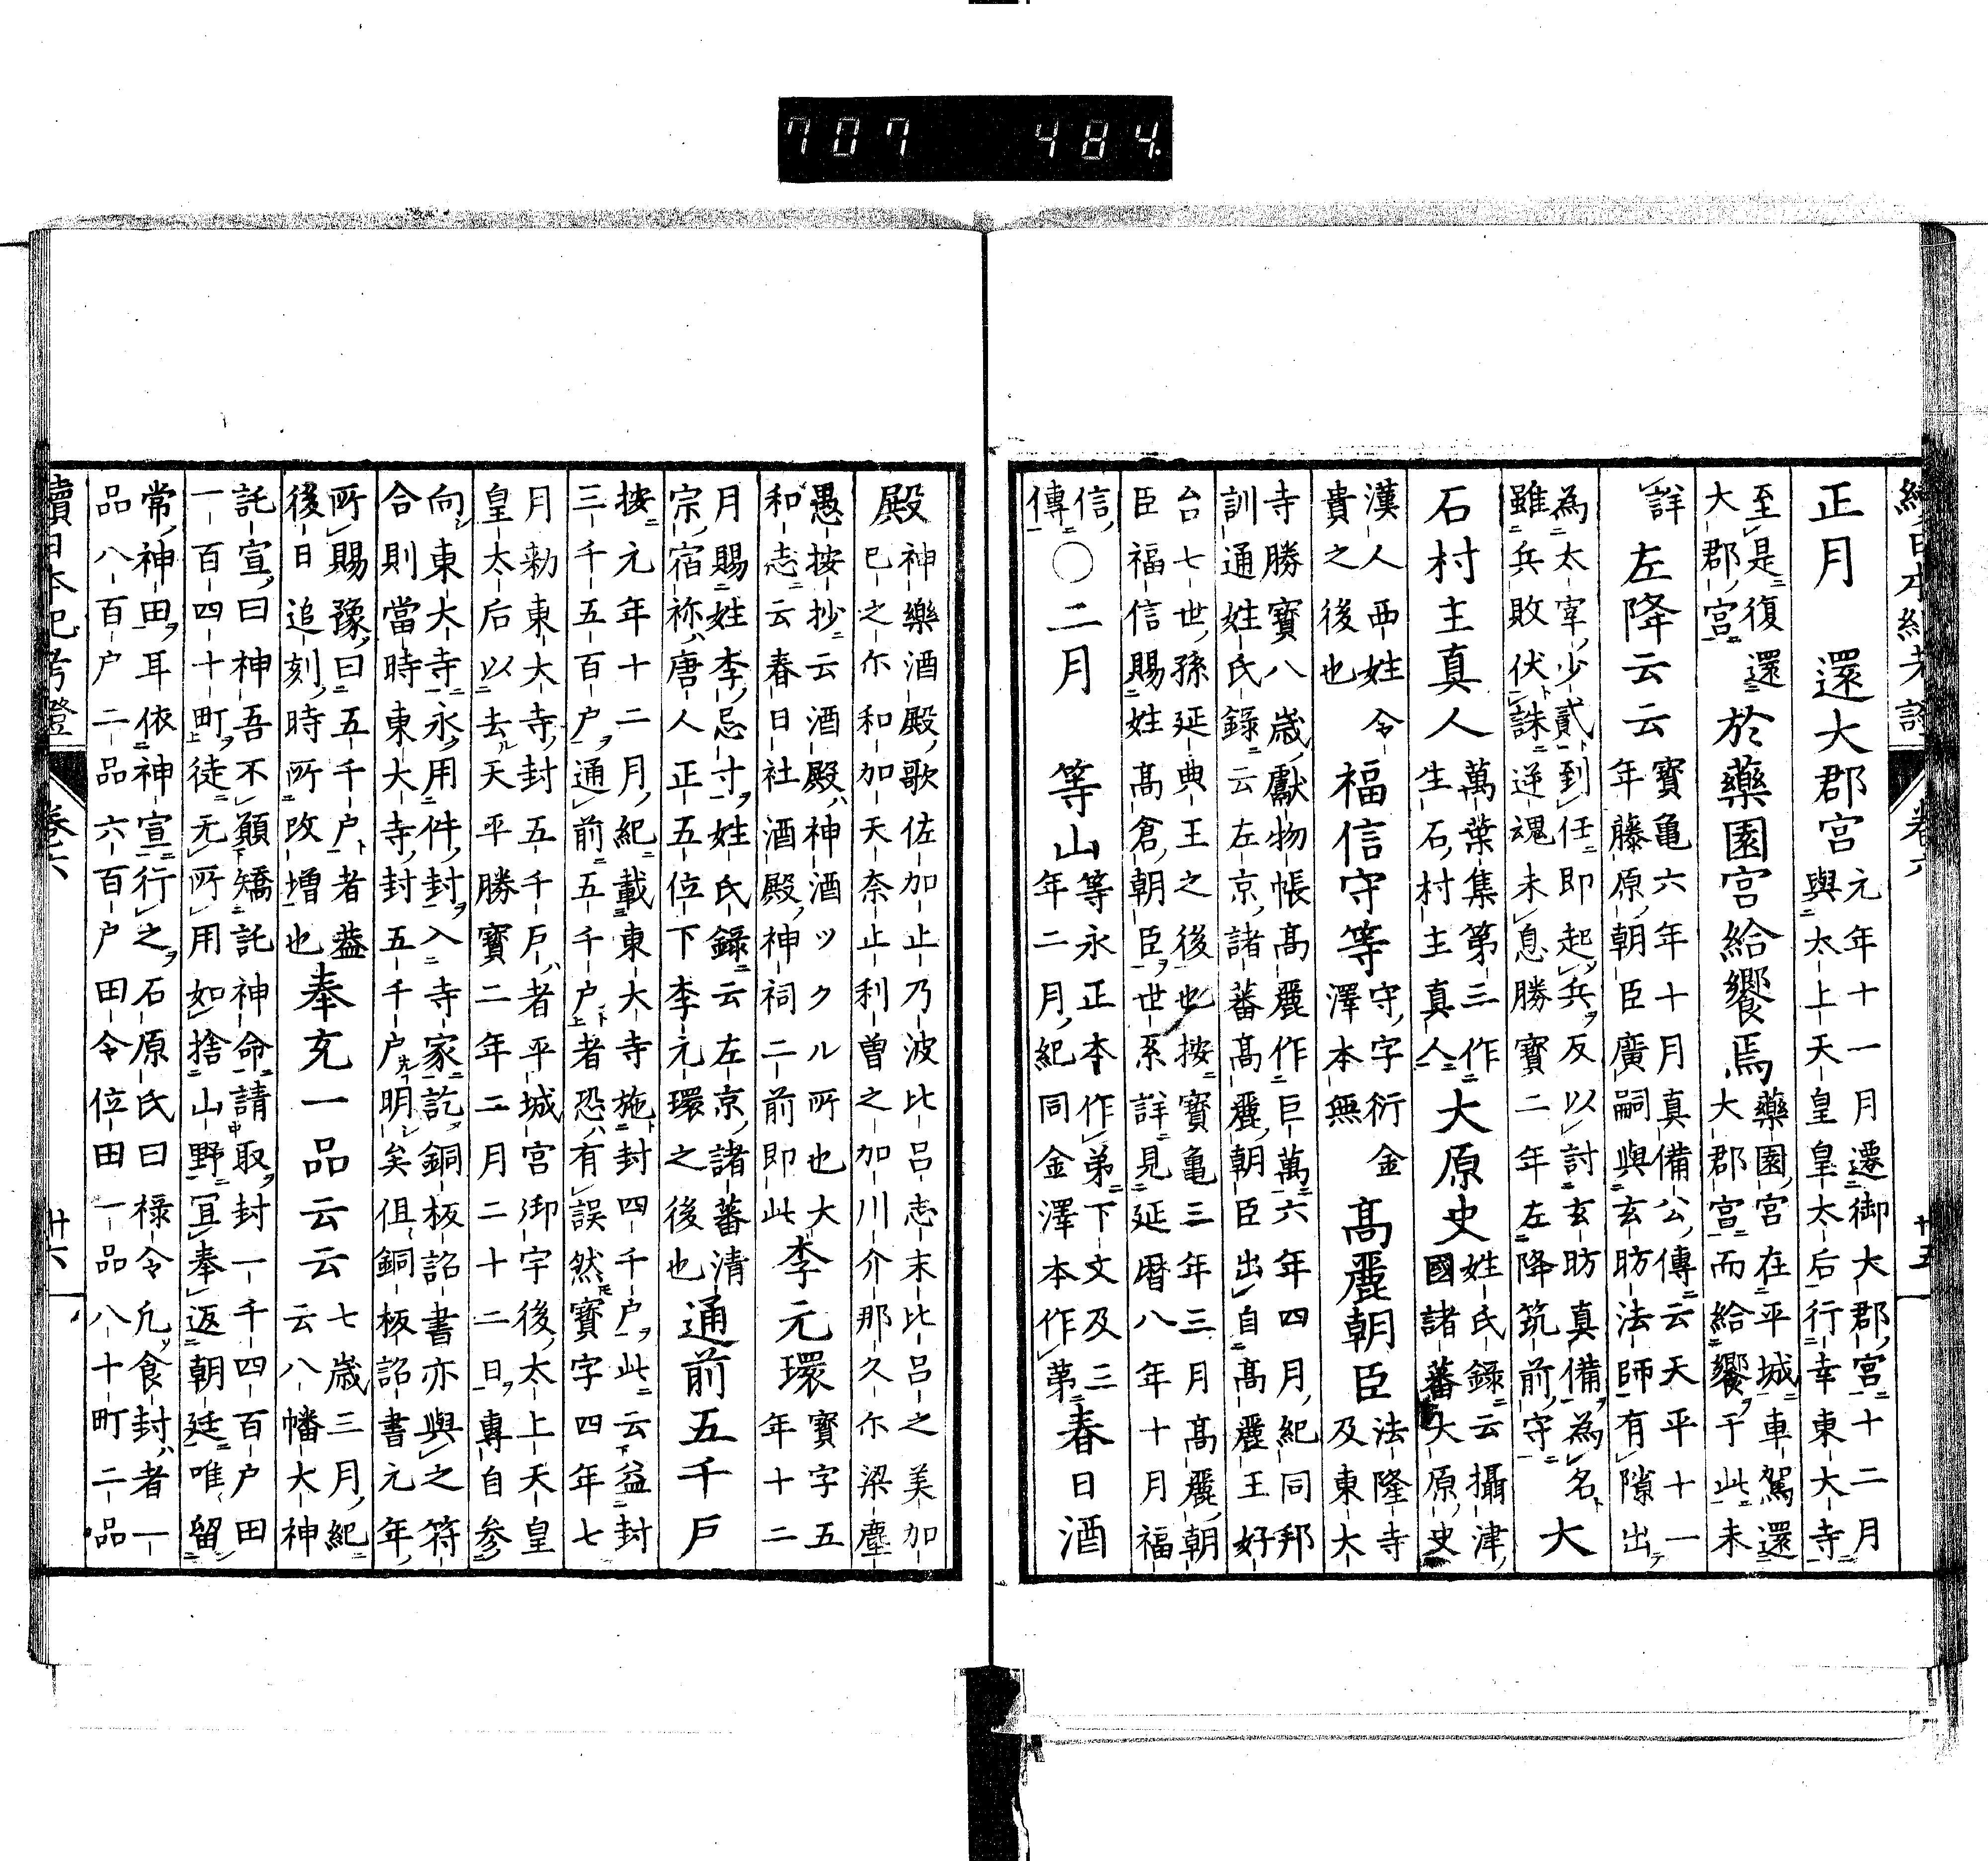 續日本紀考證　卷六　廿五
正月　還大郡宮元年十一月遷御大郡宮十二月與太上天皇皇太后行幸東大寺
至是復還大郡宮於藥園宮給饗焉藥園宮在平城車駕還大郡宮而給饗于此未
詳　左降云云寶亀六年十月真備公傳云天平十一年藤原朝臣廣嗣與玄昉法師有隙出
為太宰少貳到任即起兵反以討玄昉真備為名雖兵敗伏誅逆魂未息勝寶二年左降筑前守　大
石村主真人萬葉集第三作生石村主真人　大原史姓氏錄云攝津國諸蕃大原史
漢人西姓令貴之後也　福信守等守字衍金澤本無　髙麗朝臣法隆寺及東大
寺勝寶八歲獻物帳髙麗作巨萬六年四月紀同邦訓通姓氏錄云左京諸蕃髙麗朝臣出自髙麗王好
台七世孫延典王之後也按寶亀三年三月髙麗朝臣福信賜姓髙倉朝臣世系詳見延暦八年十月福
信傳○二月　等山等永正本作弟下文及三年二月紀同金澤本作第　春日酒
殿神樂酒殿歌佐加止乃波比呂志末比呂之美加已之尓和加天奈止利曽之加川介那久尓梁塵
愚按抄云酒殿ハ神酒ツクル所也大和志云春日社酒殿神祠二前即此　李元環寶字五年十二
月賜姓李忌寸姓氏錄云左京諸蕃清宗宿祢唐人正五位下李元環之後也　通前五千戶
按元年十二月紀載東大寺施封四千户此云益封三千五百户通前五千户者恐有誤然寶字四年七
月勅東大寺封五千戶者平城宮御宇後太上天皇皇太后以去天平勝寶二年二月二十二日專自参
向東大寺永用件封入寺家訖銅板詔書亦與之符合則當時東大寺封五千户明矣但銅板詔書元年
所賜豫曰五千户者葢後日追刻時所改増也　奉充一品云云七歲三月紀云八幡大神
託宣曰神吾不願矯託神命請取封一千四百户田一百四十町徒无所用如捨山野冝奉返朝廷唯留
常神田耳依神宣行之石原氏曰禄令凢食封者一品八百户二品六百户田令位田一品八十町二品
續日本紀考證　卷六　廿六